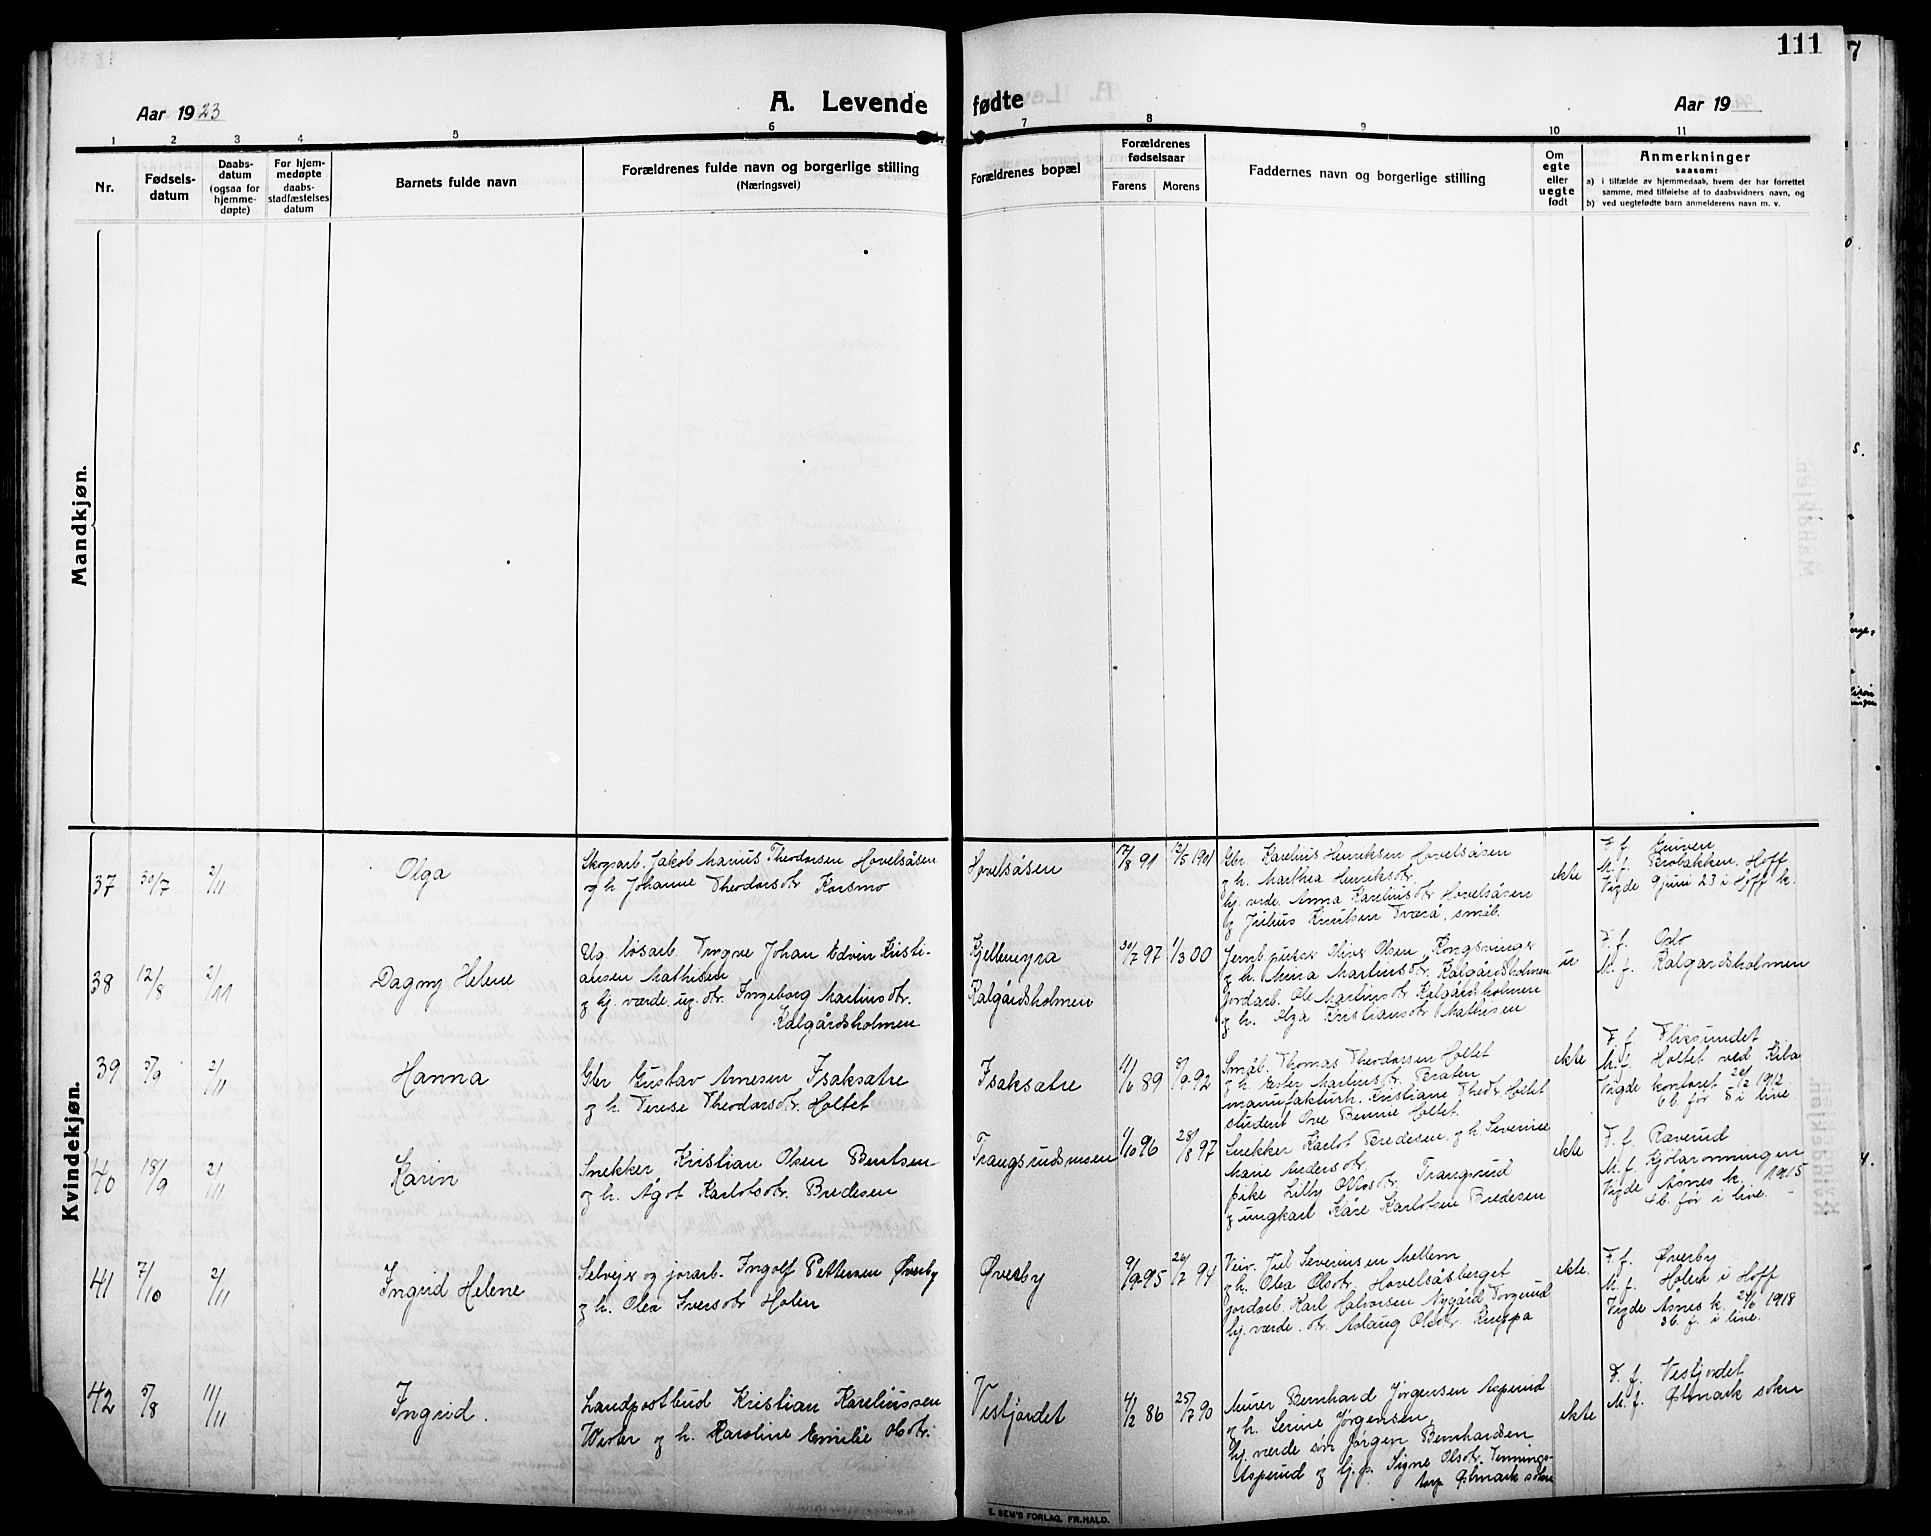 111
Aar 1923
A. Levende fødte
Aar 19
1 2 3 4 5 6 7 8 9 10 11
Nr.
Fødsels-
datum
Daabs-
datum
(ogsaa for
hjemme-
døpte)
For hjem-
medøpte
daabs-
stadfæstelses
datum
Barnets fulde navn
Forældrenes fulde navn og borgerlige stilling
(Næringsvei)
Forældrenes bopæl
Forældrenes
fødselsaar
Farens Morens
Faddernes navn og borgerlige stilling
Om
egte
eller
uegte
født
Anmerkninger
saasom:
a) i tilfælde av hjemmedaab, hvem der har forrettet
samme, med tilføielse af to daabsvidners navn, og
b) ved uegtefødte barn anmelderens navn m. v.
Mandkjøn.
Kvindekjøn.
37 30/7 2/11 Olga
Skogsarb. Jakob Marius Theodorsen Hovelsåsen
og h. Johanne Theodorsdtr. Karsmo
Hovelsåsen
17/8 91 12/5 1901
Gbr. Karelius Henriksen Hovelsåsen
og h. Marthea Henriksdtr.
hj. vrde. Anna Kareliusdtr Hovelsåsen
og Julius Knutsen Tverå, småb.
ekte
F. f. Gruven
M. f. Brobakken, Hoff
Vigde 9 juni 23 i Hoff k.
38 12/8 2/11 Dagny Helene
Ug. løsarb. Trygve Johan Edvin Kristi-
ansen Mathisen
og hj. værde. ug. dtr. Ingeborg Martinsdtr.
Kalgårdsholmen
Kjellemyra
Kalgårdsholmen
30/7 97 1/3 00
Jernb. pusser Oliver Olsen, Kongsvinger
og h. Mina Martinsdtr. Kalgårdsholmen
Jordarb. Ole Martinsdtr Kalgårdsholmen
og h. Olga Kristiansdtr Mathisen
u
F. f. Oslo
M. f. Kalgardsholmen
39 5/9 2/11 Hanna
Gbr Gustav Arnesen Isaksætre
og h. Terese Theodorsdtr. Holtet
Isaksætre
4/6 89 8/9 92
Småb. Thomas Theodorsen Holtet
og h. Ester Martinsdtr. Bråten
manufakturh. Kristiane Theodr. Holtet
student Ove Bennie Holtet
ekte
F. f. Flisundet
M. f. Holtet ved Kila
Vigde kontoret 26/2 1912
6 b. før 5 i live
40 18/9 2/11 Karin
Snekker Kristian Olsen Berntsen
og h. Ågot Karlotsdtr. Bredesen
Trangsrudsmoen
1/10 96 28/8 97
Snekker Karlot Bredesen og h. Severine
Marie Andersdtr.
pike Lilly Olsdtr. Trangsrud
og ungkarl Kåre Karlotsen Bredesen
ekte
F. f. Raverud
M. f. Kjølaromningen
Vigde Åsnes k. 1915
4 b. før i live.
41 7/10 2/11 Ingrid Helene
Selveier og jorarb. Ingolf Pettersen Øverby
og h. Olea Iversdtr Holen
Øverby
9/9 95 26/7 94
Veiv. Juel Severinsen Mellem
og h. Olea Olsdtr. Hovelsåsberget
jordarb. Karl Halvorsen Nygård Torgerud
hj. værde. dtr. Aslaug Olsdtr. Kneppa
ekte.
F. f. Øverby
M. f. Holen i Hoff
Vigde Åsnes k. 24/6 1918
3 b. f. i live.
42 5/8 11/11 Ingrid.
Landpostbud Kristian Kareliussen
Wester og h. Karoline Emilie Olsdtr.
Vestjordet
4/2 86 25/7 90
Murer Bernhard Jørgensen Asperud
og h. Serine Jørgensen,
hj. værde søn Jørgen Bernhardsen
Asperud og hj. p. Signe Olsdtr. Tennings-
torp Østmark sokn
ekte
F. f. Vestjordet
M. f. Østmark sokn
E. SEM'S FORLAG, FR.HALD.